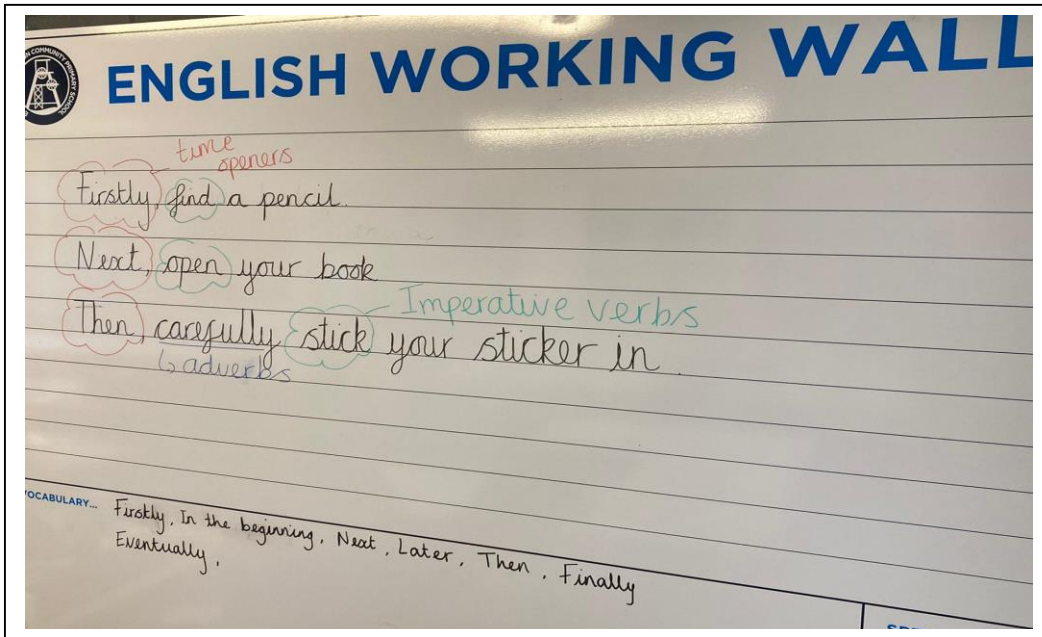 COMMUNITY PRIMARY SCHOOL
ENGLISH WORKING WALL
time
openers
Firstly, find a pencil.
Next, open your book
Imperative verbs
Then, carefully stick your sticker in.
↳ adverbs
VOCABULARY... Firstly, In the beginning, Next, Later, Then, Finally
Eventually,